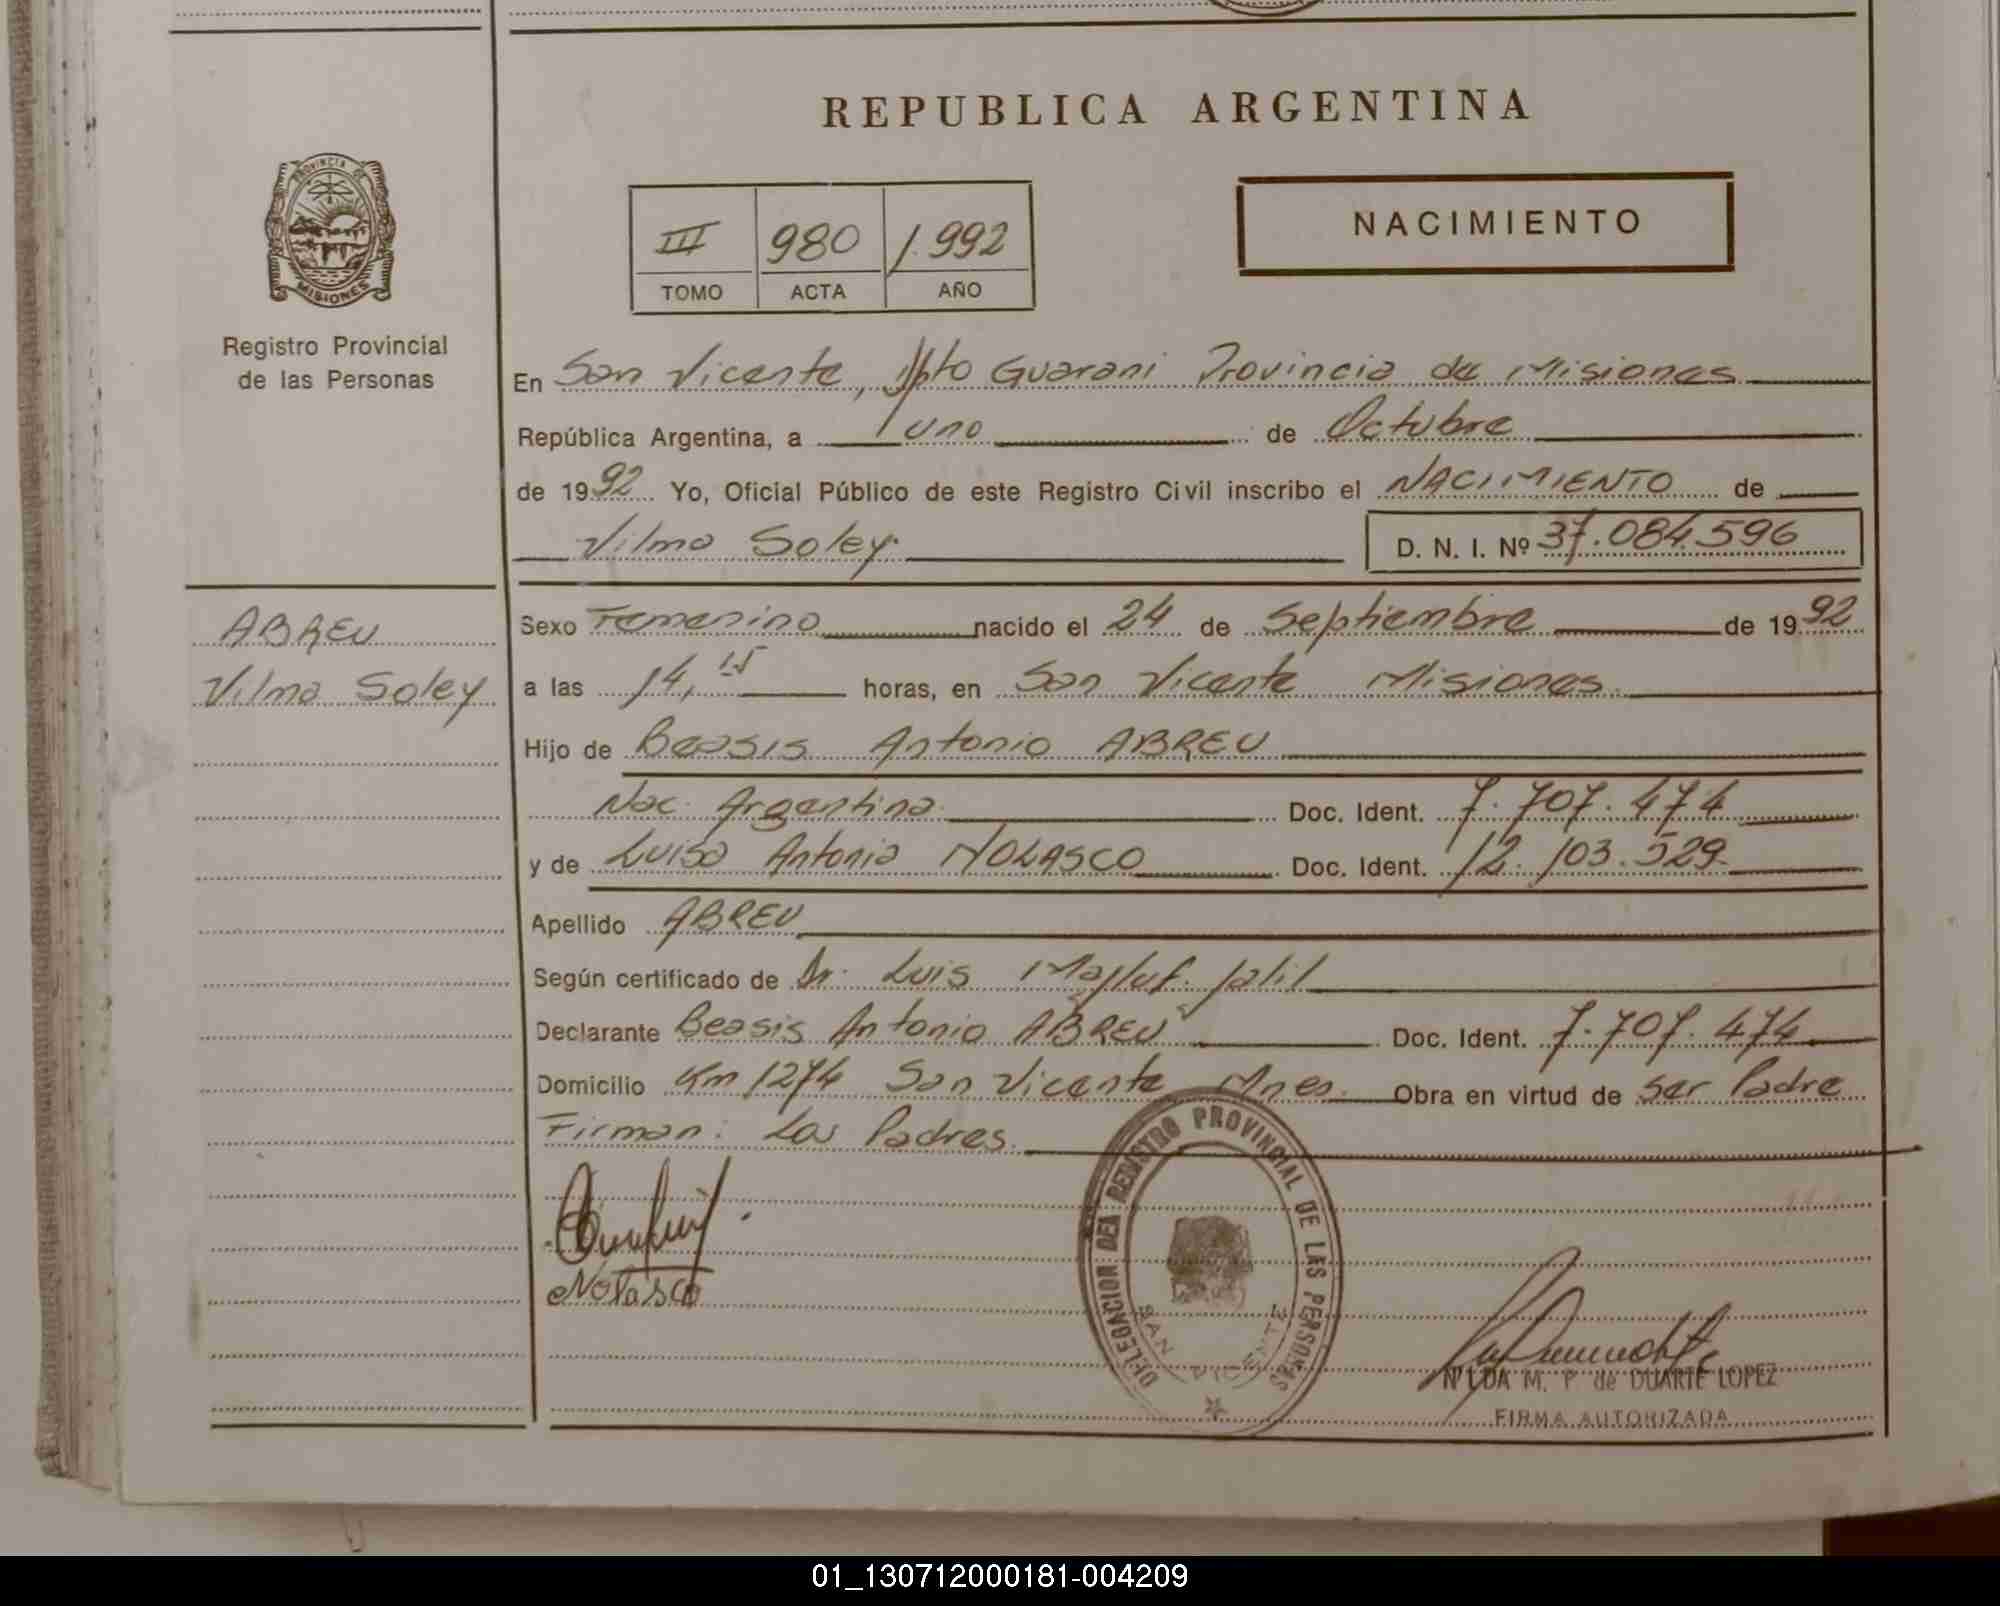 REPUBLICA ARGENTINA
PROVINCIA DE
MISIONES
Registro Provincial
de las Personas
III 980 1.992
TOMO ACTA AÑO
NACIMIENTO
En San Vicente, Dpto Guarani Provincia de Misiones
República Argentina, a 1 uno de Octubre
de 1992 Yo, Oficial Público de este Registro Civil inscribo el NACIMIENTO de
Vilma Soley D. N. I. Nº 37.084.596
ABREU
Vilma Soley
Sexo Femenino nacido el 24 de Septiembre de 1992
a las 14,15 horas, en San Vicente Misiones.
Hijo de Beasis Antonio ABREU
Nac. Argentina. Doc. Ident. 7.707.474
y de Luisa Antonia NOLASCO Doc. Ident. 12.103.529
Apellido ABREU
Según certificado de Dr. Luis Mayluf Jalil
Declarante Beasis Antonio ABREU Doc. Ident. 7.707.474
Domicilio Km 1274 San Vicente Mnes. Obra en virtud de ser Padre
Firman: Los Padres.
Nolasco
DELEGACION DEL REGISTRO PROVINCIAL DE LAS PERSONAS
SAN VICENTE
M. P. de DUARTE LOPEZ
FIRMA AUTORIZADA
01_130712000181-004209